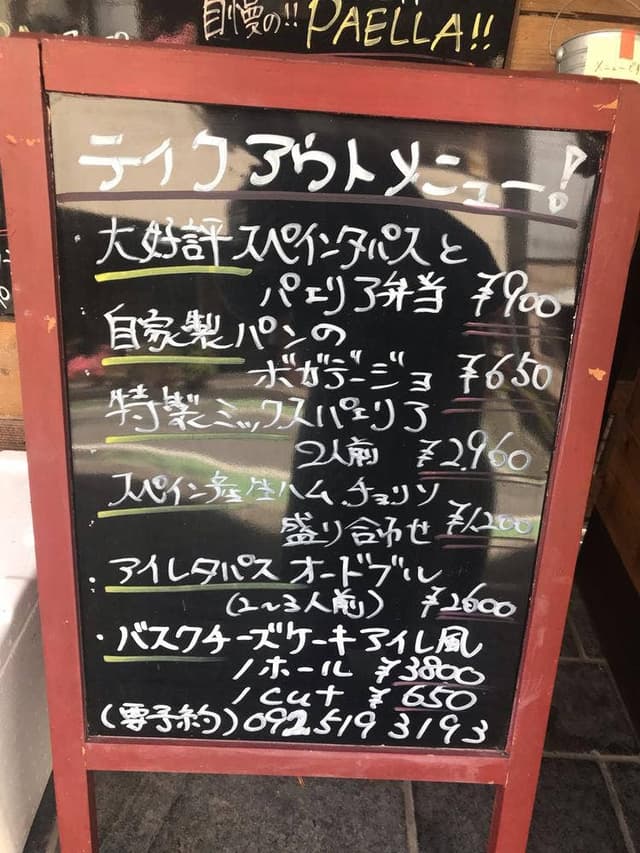 自慢の!! PAELLA!!
テイクアウトメニュー!
・大好評スペインタパスと
パエリア弁当 ¥900
・自家製パンの
ボガデージョ ¥650
・特製ミックスパエリア
2人前 ¥2,960
・スペイン産生ハム、チョリソ
盛り合わせ ¥1,200
・アイレタパスオードブル
(2～3人前) ¥2600
・バスクチーズケーキアイレ風
1ホール ¥3800
1cut ¥650
(要予約) 092 519 3193